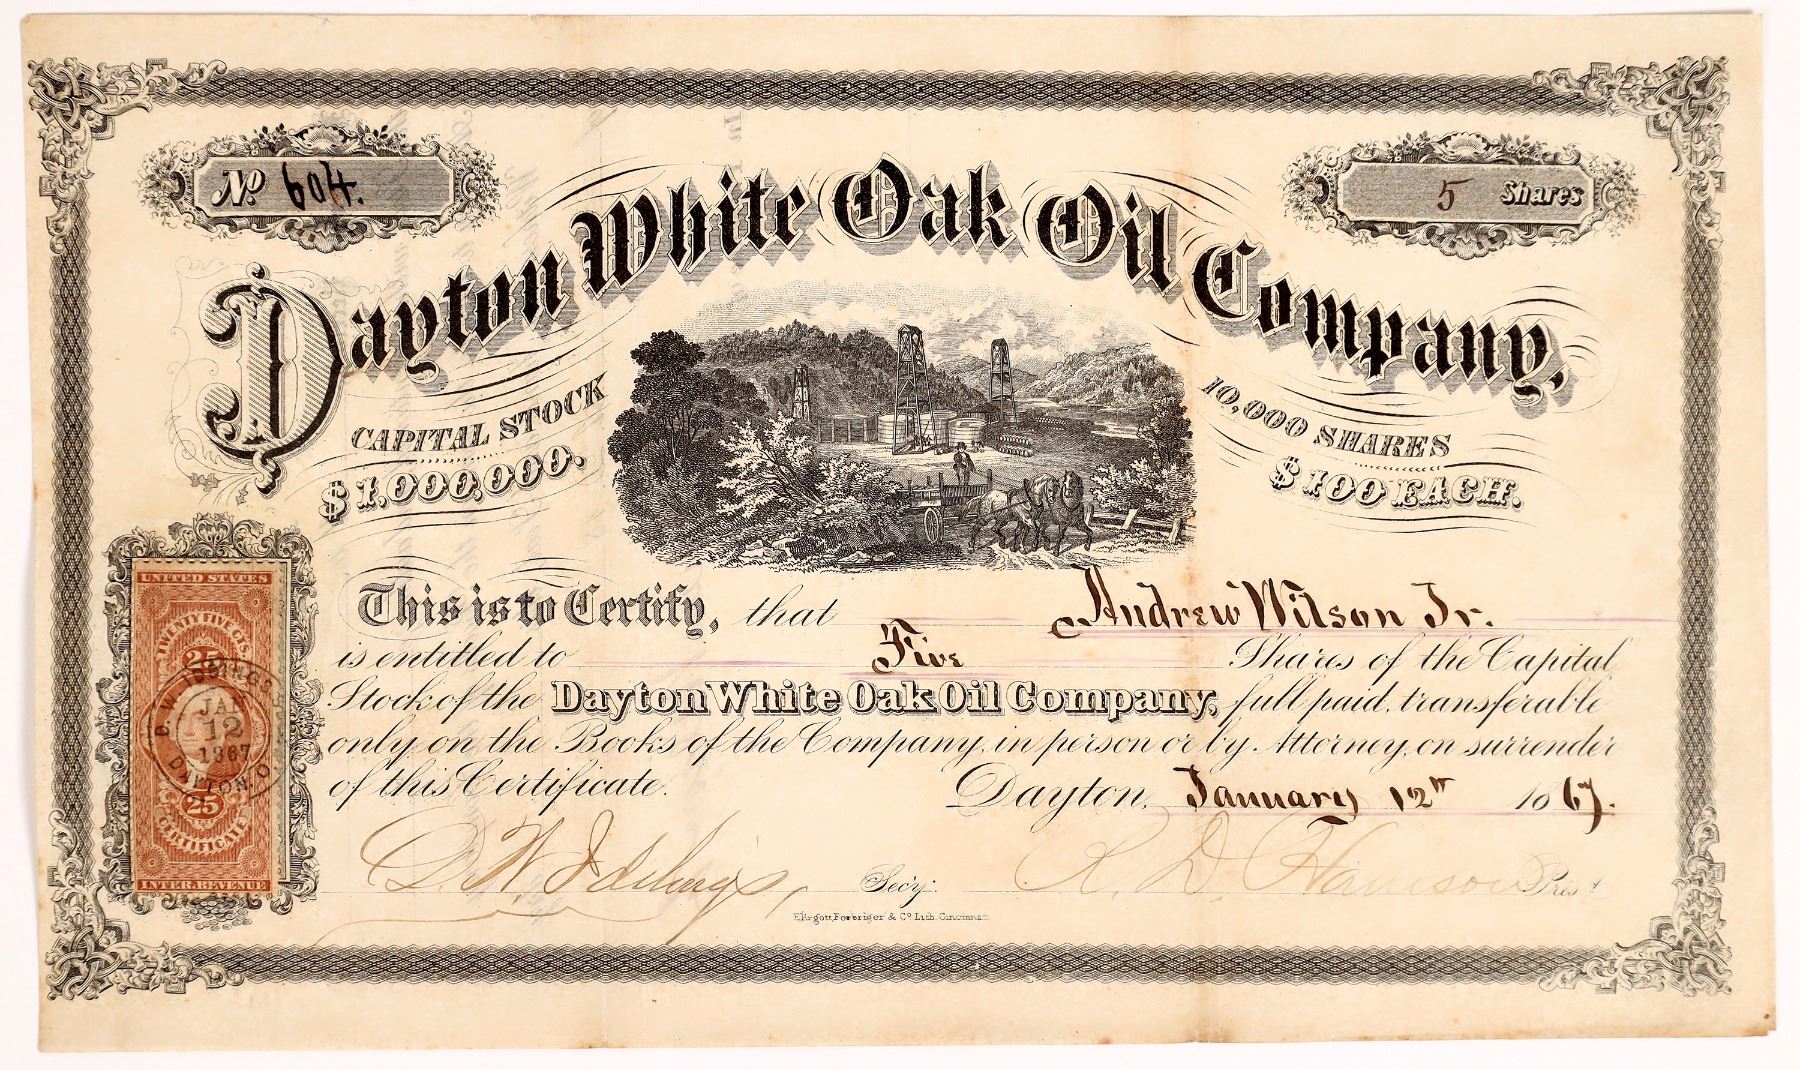 No 604.
5 Shares
Dayton White Oak Oil Company,
CAPITAL STOCK
$1,000,000.
10,000 SHARES
$100 EACH.
This is to Certify, that Andrew Wilson Jr.
is entitled to Five Shares of the Capital
Stock of the Dayton White Oak Oil Company, full paid, transferable
only on the Books of the Company, in person or by Attorney, on surrender
of this Certificate.
Dayton, January 12th 1867.
D. W. Iddings, Sec'y.
R. D. Harrison Pres't
Ehrgott, Forbriger & Co. Lith. Cincinnati
UNITED STATES
TWENTY FIVE CTS.
25
D. W. IDDINGS
JAN
12
1867
DAYTON, O.
25
CERTIFICATE
INTER. REVENUE